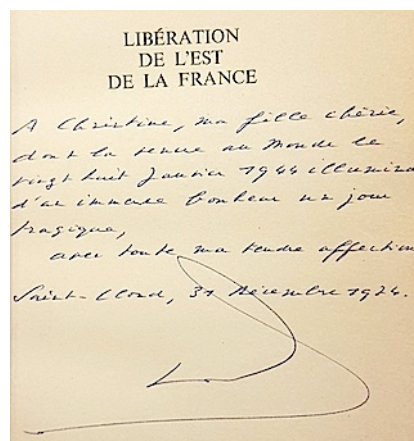 LIBÉRATION
DE L'EST
DE LA FRANCE
A Christine, ma fille chérie,
dont la venue au Monde le
vingt huit Janvier 1944 illumina
d'un immense bonheur un jour
tragique,
avec toute ma tendre affection
Saint-Cloud, 31 Décembre 1974.